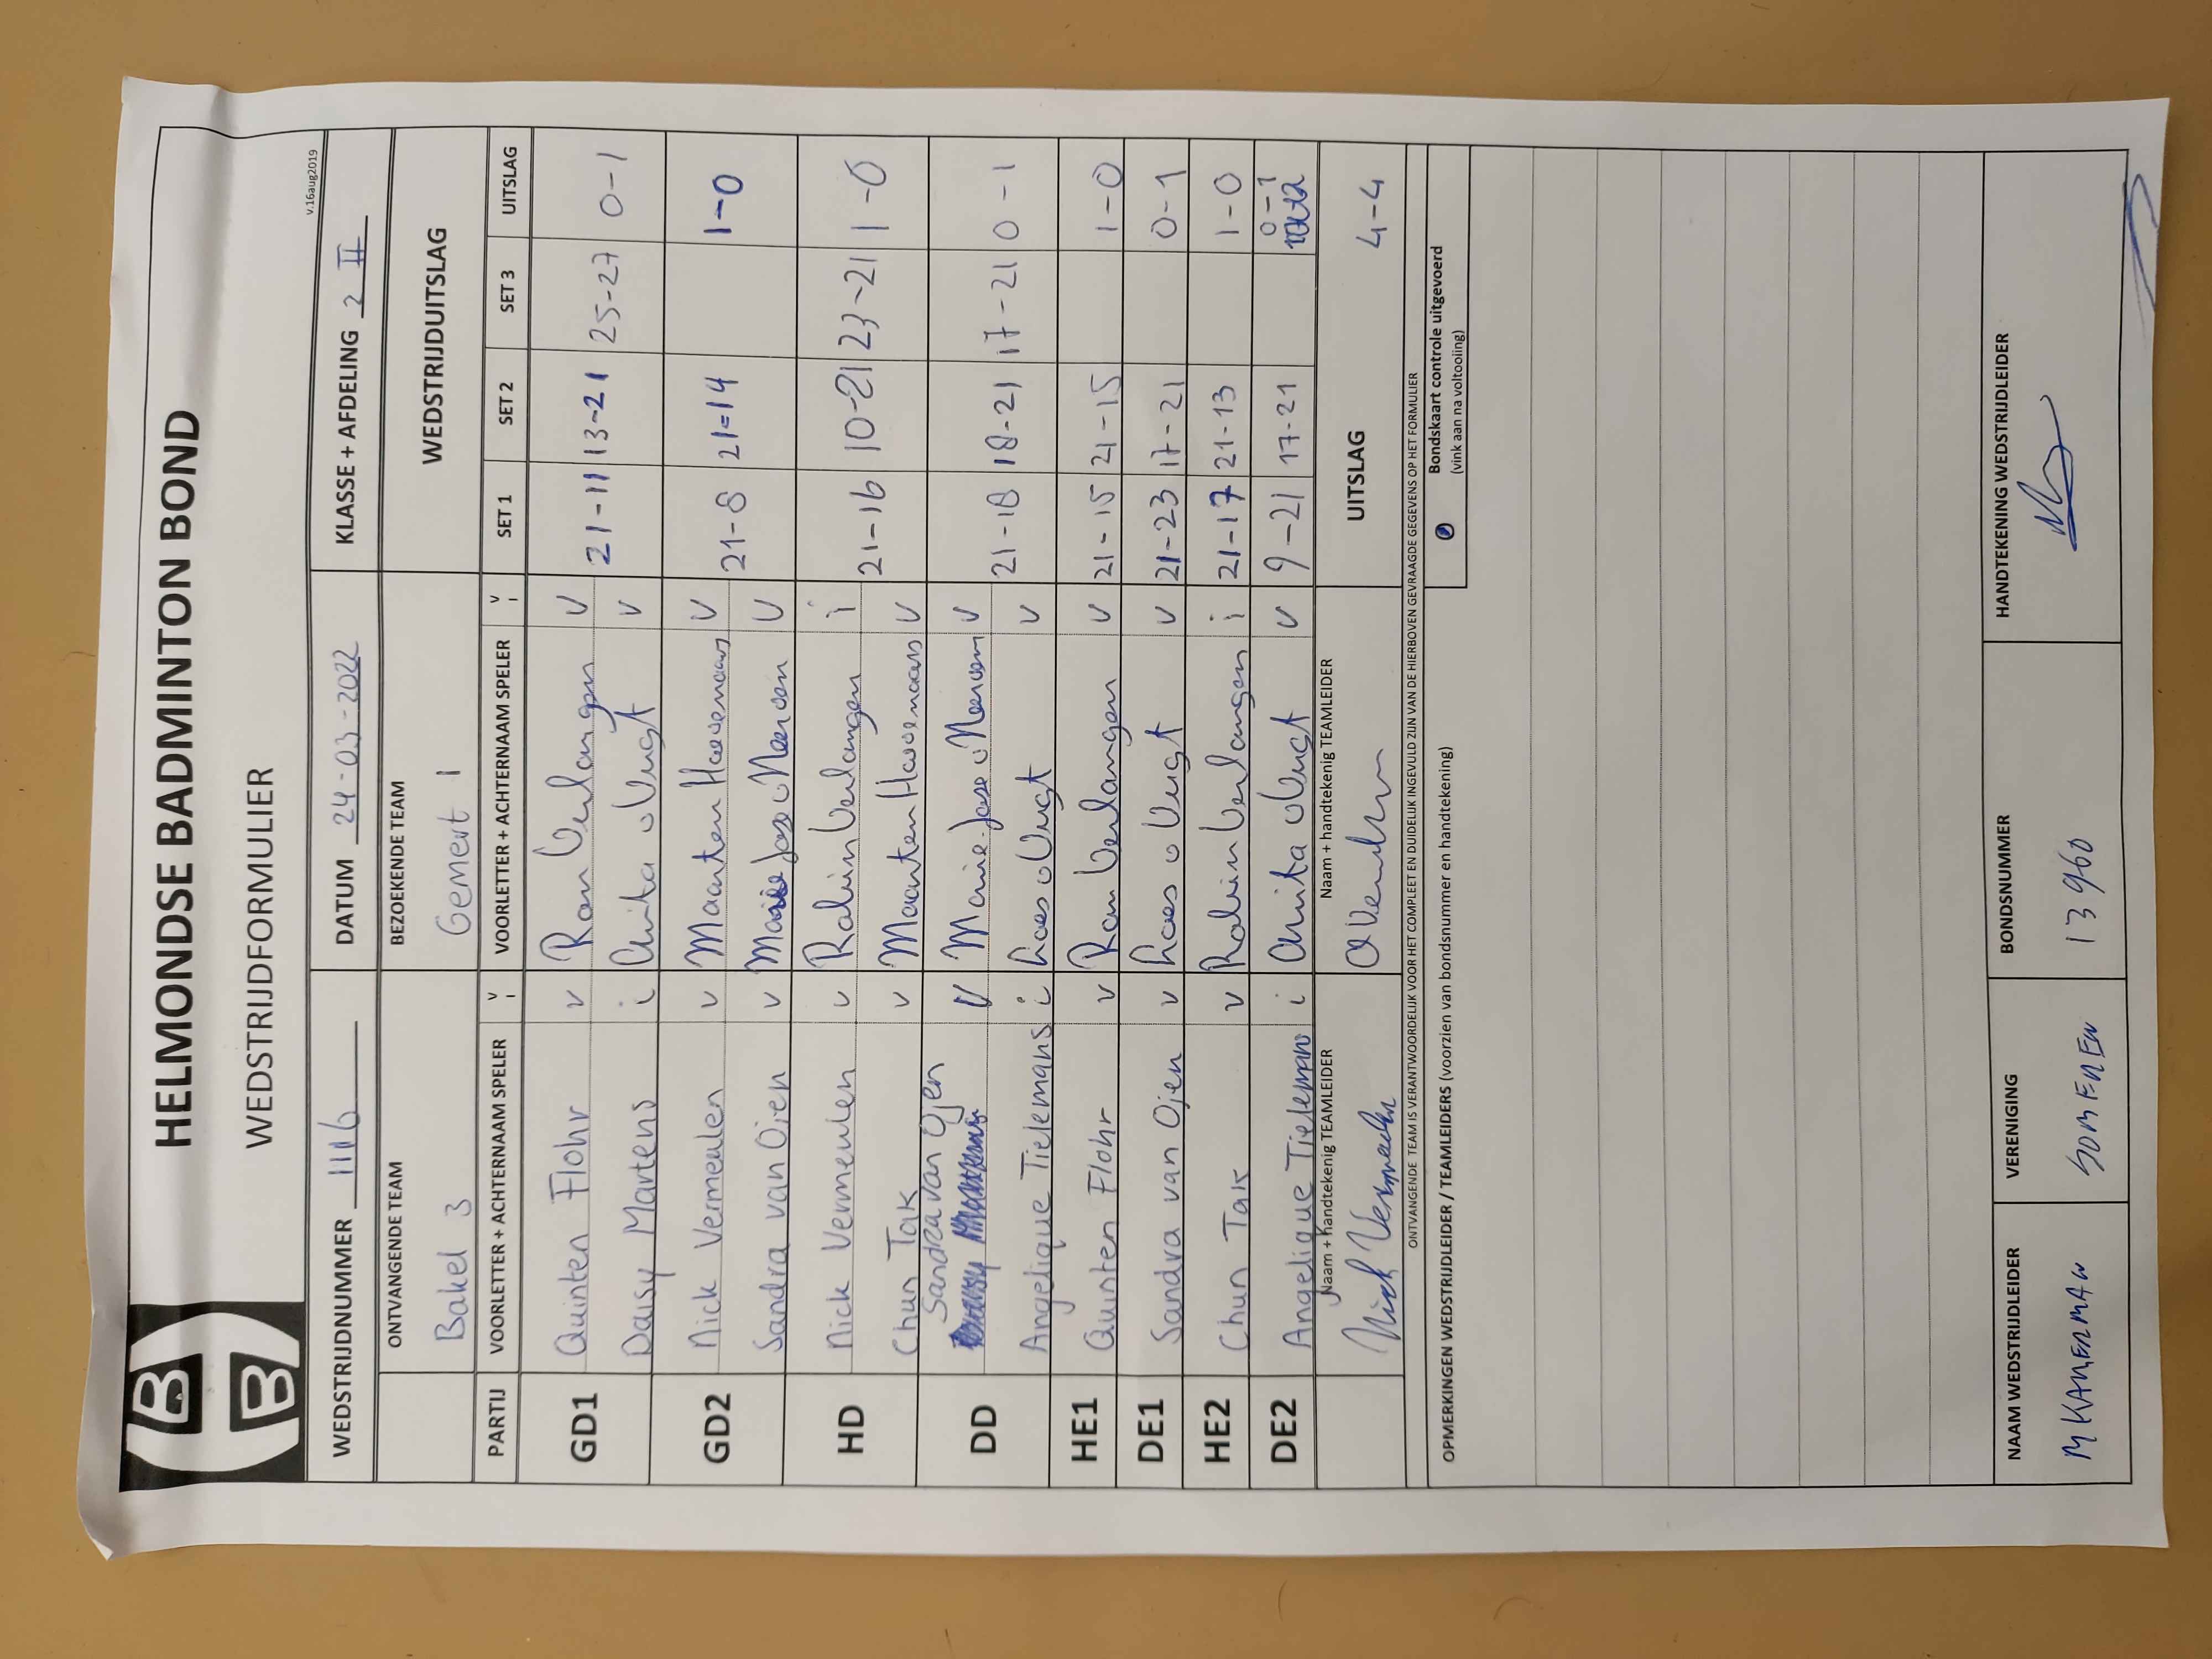 B B
HELMONDSE BADMINTON BOND
WEDSTRIJDFORMULIER
v.16aug2019
WEDSTRIJDNUMMER 1116 DATUM 24-03-2022 KLASSE + AFDELING 2 II
ONTVANGENDE TEAM BEZOEKENDE TEAM WEDSTRIJDUITSLAG
Bakel 3 Gemert 1
PARTIJ VOORLETTER + ACHTERNAAM SPELER V I VOORLETTER + ACHTERNAAM SPELER V I SET 1 SET 2 SET 3 UITSLAG
GD1 Quinten Flohr v Ron Verlangen v 21-11 13-21 25-27 0-1
Daisy Martens i Anita v Vugt v
GD2 Nick Vermeulen v Maarten Havenaars v 21-8 21=14 1-0
Sandra van Ojen v Marie Jose v Neerven v
HD Nick Vermeulen v Robin Verlangen i 21-16 10-21 23-21 1-0
Chun Tak v Maarten Havenaars v
DD Sandra van Ojen v Marie-Jose v Neerven v 21-18 18-21 17-21 0-1
Angelique Tielemans i Loes v Vugt v
HE1 Quinten Flohr v Ron Verlangen v 21-15 21-15 1-0
DE1 Sandra van Ojen v Loes v Vugt v 21-23 17-21 0-1
HE2 Chun Tak v Robin Verlangen i 21-17 21-13 1-0
DE2 Angelique Tielemans i Anita v Vugt v 9-21 17-21 0-1
Naam + handtekenig TEAMLEIDER Naam + handtekenig TEAMLEIDER UITSLAG 4-4
ONTVANGENDE TEAM IS VERANTWOORDELIJK VOOR HET COMPLEET EN DUIDELIJK INGEVULD ZIJN VAN DE HIERBOVEN GEVRAAGDE GEGEVENS OP HET FORMULIER
OPMERKINGEN WEDSTRIJDLEIDER / TEAMLEIDERS (voorzien van bondsnummer en handtekening)
Bondskaart controle uitgevoerd
(vink aan na voltooiing)
NAAM WEDSTRIJDLEIDER VERENIGING BONDSNUMMER HANDTEKENING WEDSTRIJDLEIDER
M KAMERMAN SOMEREN 13960